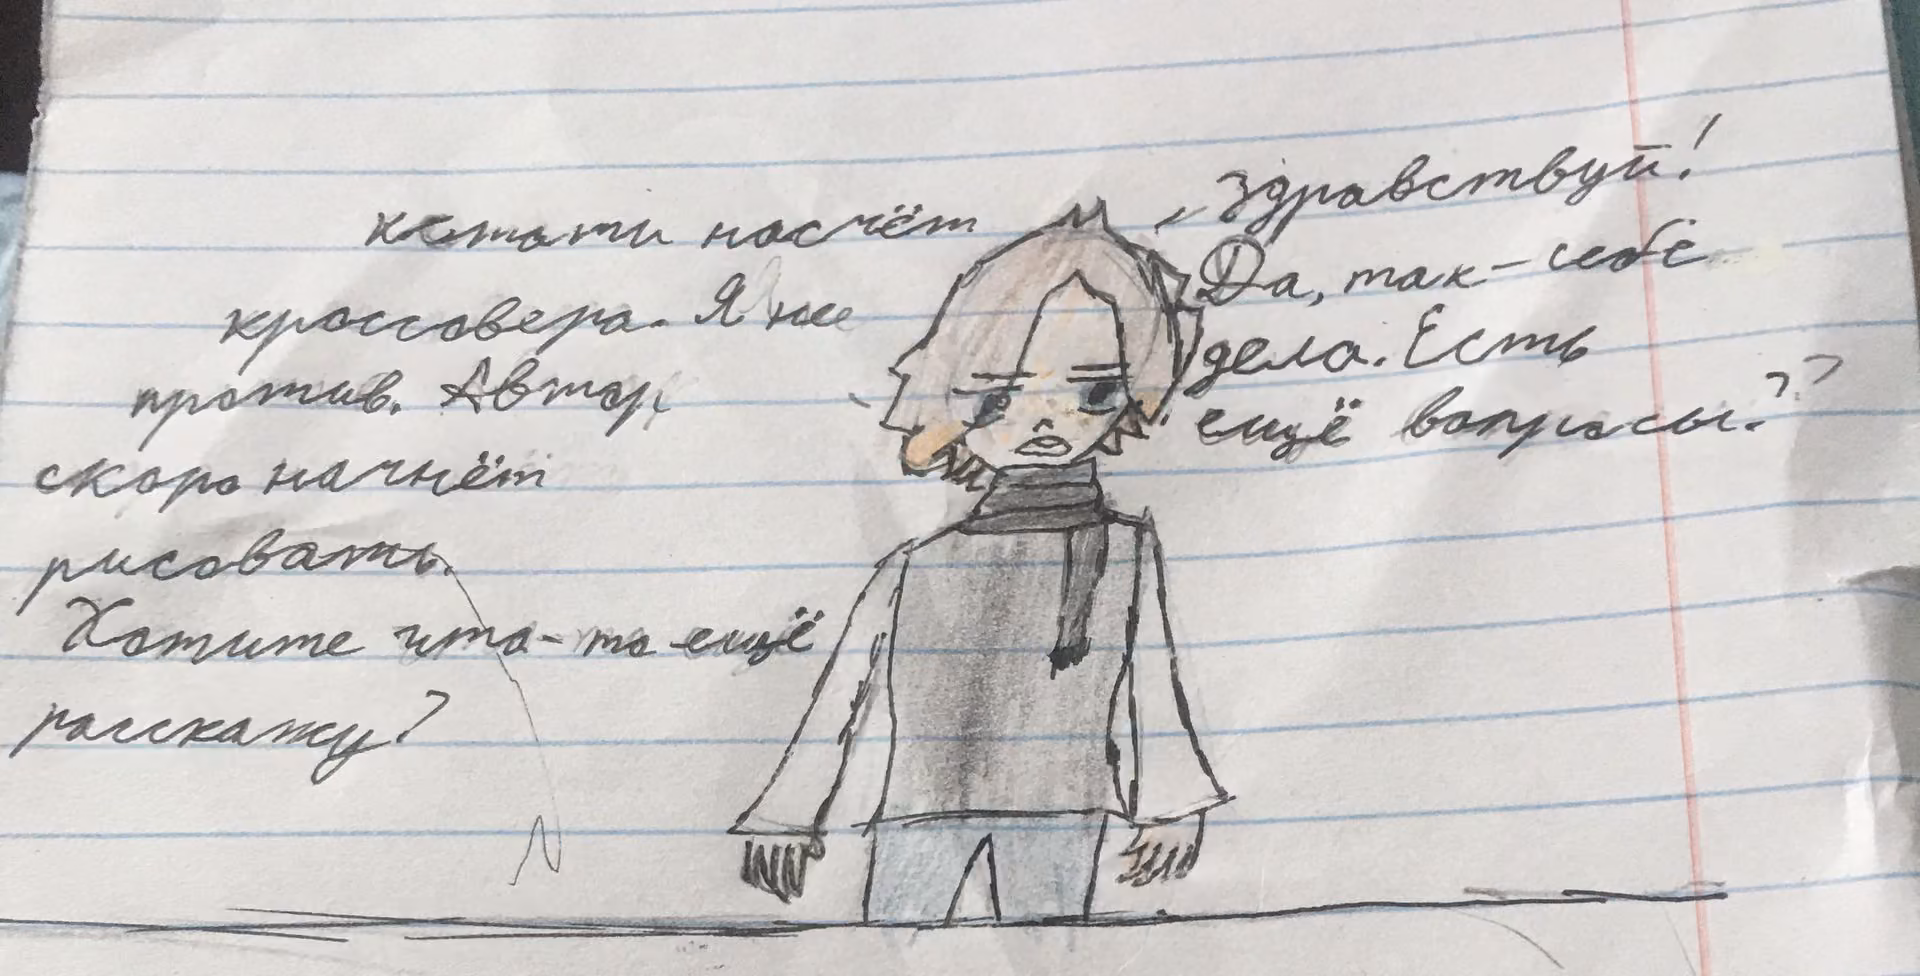 Здравствуй!
Да, так-себе
дела. Есть
ещё вопросы???
кстати насчёт
кроссовера. Я не
против. Автор
скоро начнёт
рисовать.
Хотите что-то ещё
расскажу?